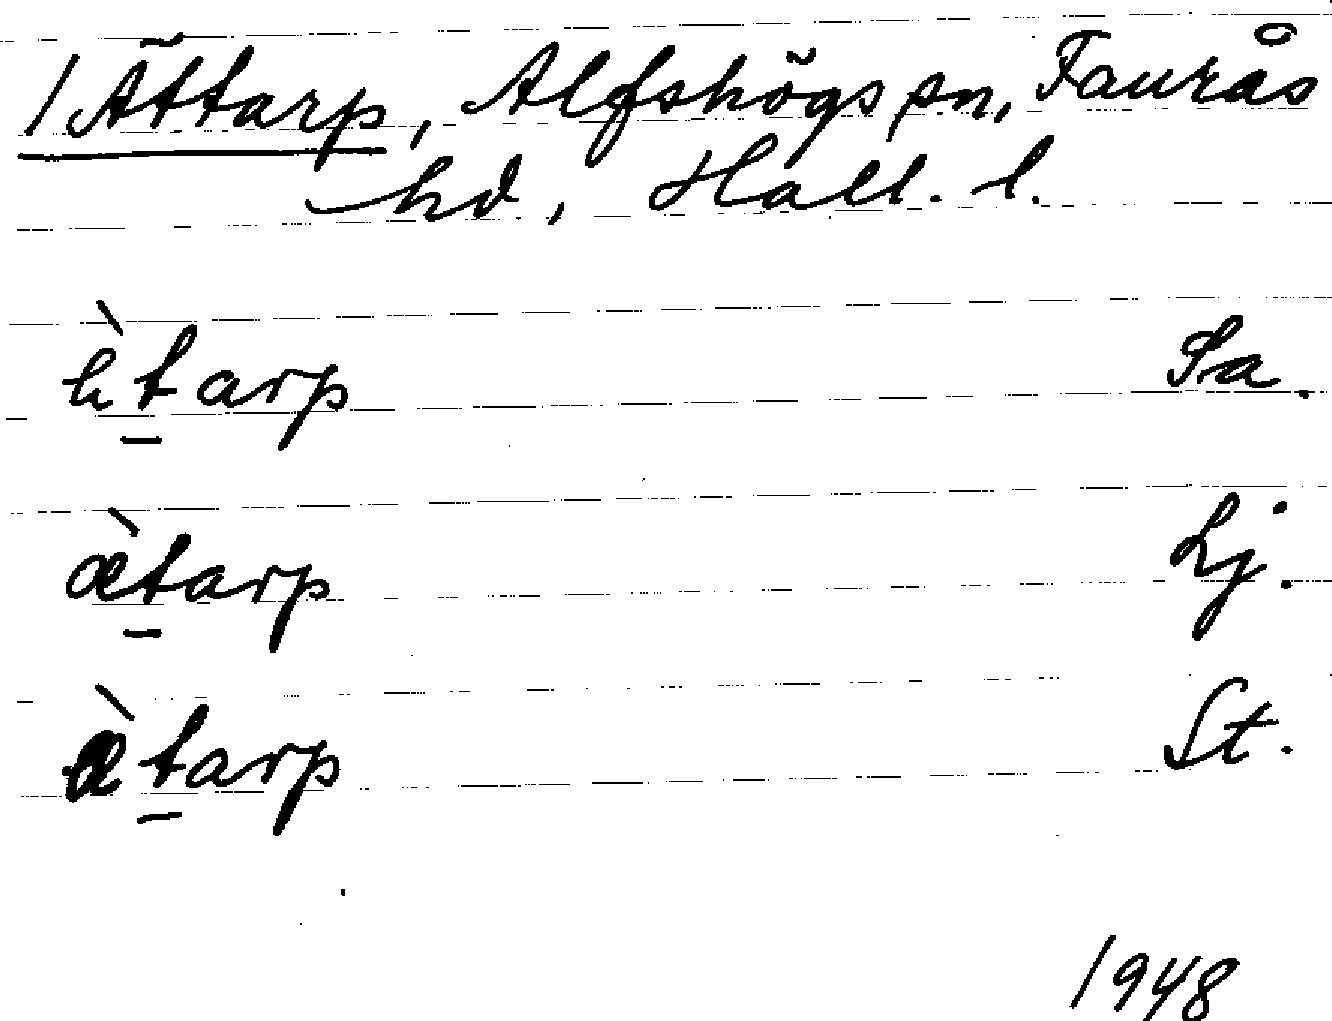 1 Ättarp, Alfshögs sn, Faurås
hd, Hall. l.
ætarp Sa.
ætarp Lj.
ætarp St.
1948